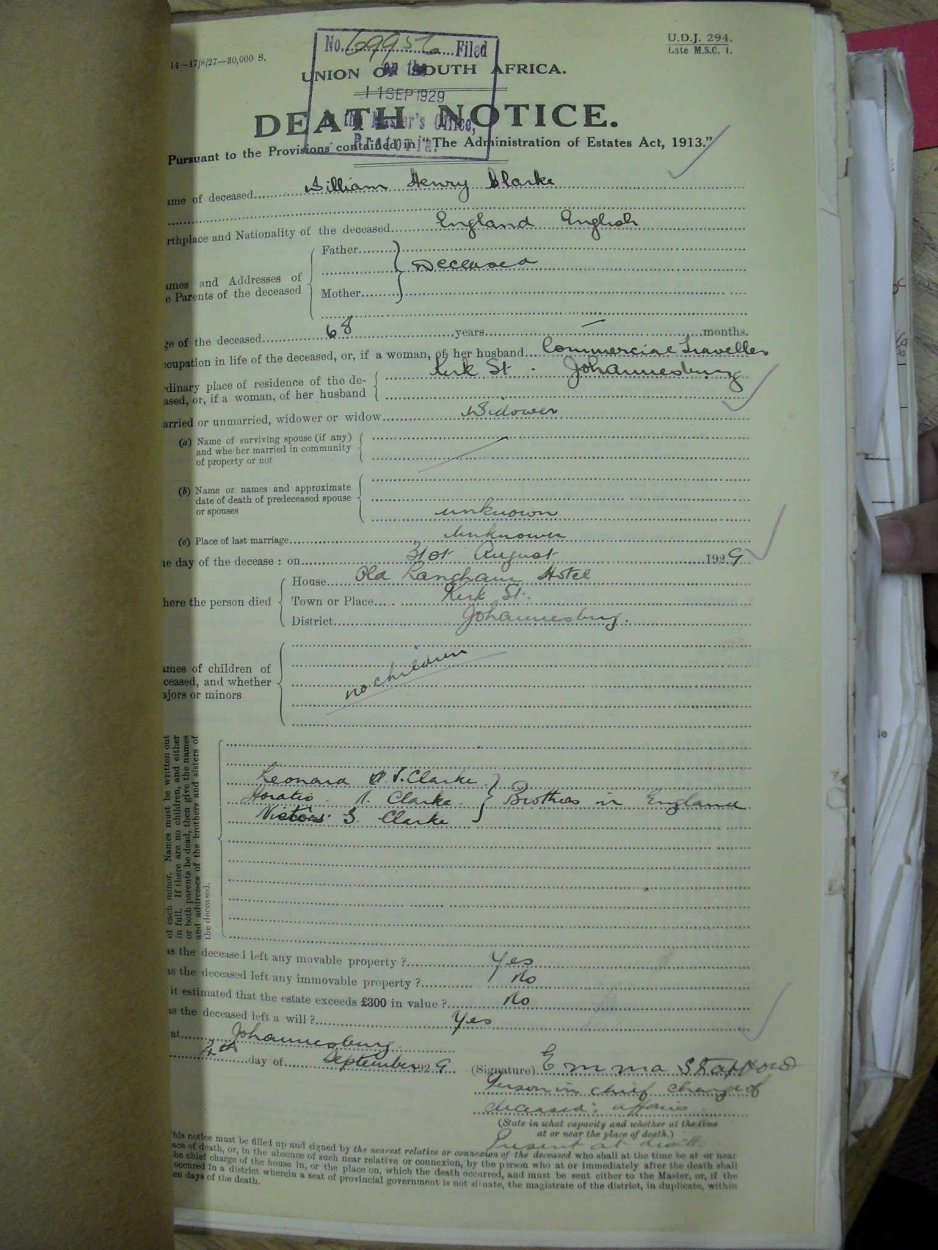 U.D.J. 294.
Late M.S.C. 1.
14—17/8/27—30,000 S.
No. Filed
UNION OF SOUTH AFRICA.
on the
11 SEP 1929
DEATH NOTICE.
Master's Office,
Pretoria.
Pursuant to the Provisions contained in "The Administration of Estates Act, 1913."
ame of deceased William Henry Clarke
rthplace and Nationality of the deceased England English
Father
ames and Addresses of
e Parents of the deceased
Deceased
Mother
ge of the deceased 68 years — months.
ccupation in life of the deceased, or, if a woman, of her husband Commercial Traveller
rdinary place of residence of the de-
ased, or, if a woman, of her husband
Kerk St. Johannesburg
arried or unmarried, widower or widow Widower
(a) Name of surviving spouse (if any)
and whether married in community
of property or not
(b) Name or names and approximate
date of death of predeceased spouse
or spouses
unknown
(c) Place of last marriage unknown
he day of the decease : on 31st August 1929
here the person died
House Old Langham Hotel
Town or Place Kerk St.
District Johannesburg.
ames of children of
ceased, and whether
ajors or minors
no children
of each minor. Names must be written out
in full. If there are no children, and either
or both parents be dead, then give the names
and addresses of the brothers and sisters of
the deceased.
Leonard Clarke
Horatio Clarke
Clarke
Brothers in England
as the deceased left any movable property ? Yes
as the deceased left any immovable property ? No
it estimated that the estate exceeds £300 in value ? No
as the deceased left a will ? Yes
at Johannesburg
day of September 1929
(Signature) Emma Stafford
Person in chief charge of
deceased's affairs.
(State in what capacity and whether at the time
at or near the place of death.)
Present at death.
his notice must be filled up and signed by the nearest relative or connexion of the deceased who shall at the time be at or near
ace of death, or, in the absence of such near relative or connexion, by the person who at or immediately after the death shall
he chief charge of the house in, or the place on, which the death occurred, and must be sent either to the Master, or, if the
occurred in a district wherein a seat of provincial government is not situate, the magistrate of the district, in duplicate, within
en days of the death.